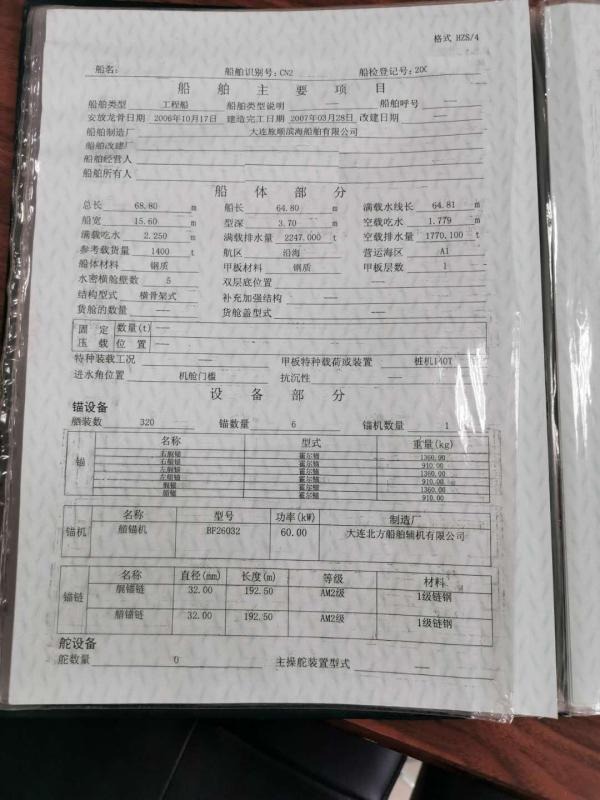 格式 HZS/4
船名: 船舶识别号: CN2 船检登记号: 20C
船舶主要项目
船舶类型 工程船 船舶类型说明 — 船舶呼号 —
安放龙骨日期 2006年10月17日 建造完工日期 2007年03月28日 改建日期 —
船舶制造厂 大连旅顺滨海船舶有限公司
船舶改建厂
船舶经营人
船舶所有人
船体部分
总长 68.80 m 船长 64.80 m 满载水线长 64.81 m
船宽 15.60 m 型深 3.70 m 空载吃水 1.779 m
满载吃水 2.250 m 满载排水量 2247.000 t 空载排水量 1770.100 t
参考载货量 1400 t 航区 沿海 营运海区 A1
船体材料 钢质 甲板材料 钢质 甲板层数 1
水密横舱壁数 5 双层底位置 —
结构型式 横骨架式 补充加强结构 —
货舱的数量 — 货舱盖型式 —
固定 数量(t) —
压载 位置 —
特种装载工况 — 甲板特种载荷或装置 桩机140T
进水角位置 机舱门槛 抗沉性 —
设备部分
锚设备
舾装数 320 锚数量 6 锚机数量 1
锚 名称 型式 重量(kg)
右艉锚 霍尔锚 1360.00
右艏锚 霍尔锚 910.00
左艉锚 霍尔锚 1360.00
左艏锚 霍尔锚 910.00
艉锚 霍尔锚 1360.00
艏锚 霍尔锚 910.00
锚机 名称 型号 功率(kW) 制造厂
艏锚机 BF26032 60.00 大连北方船舶辅机有限公司
锚链 名称 直径(mm) 长度(m) 等级 材料
艉锚链 32.00 192.50 AM2级 1级链钢
艏锚链 32.00 192.50 AM2级 1级链钢
舵设备
舵数量 0 主操舵装置型式 —